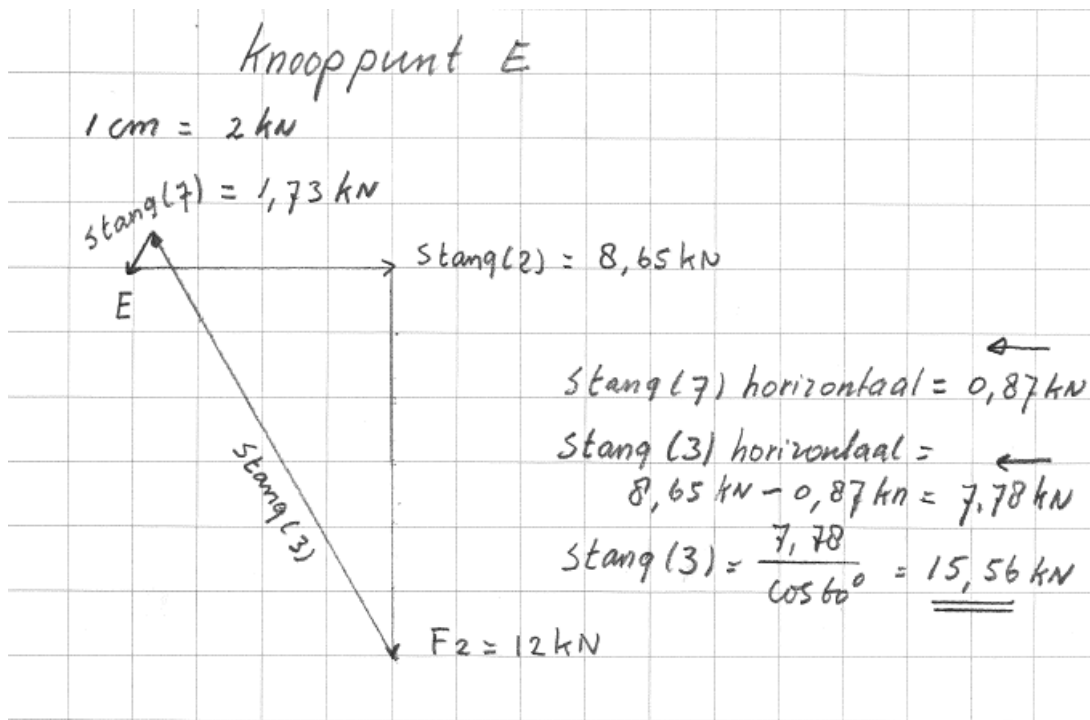 knooppunt E
1 cm = 2 kN
stang(7) = 1,73 kN
stang(2) = 8,65 kN
E
stang(7) horizontaal = 0,87 kN
stang (3) horizontaal =
8,65 kN - 0,87 kn = 7,78 kN
stang(3)
stang (3) = 7,78 / cos 60° = 15,56 kN
F2 = 12 kN